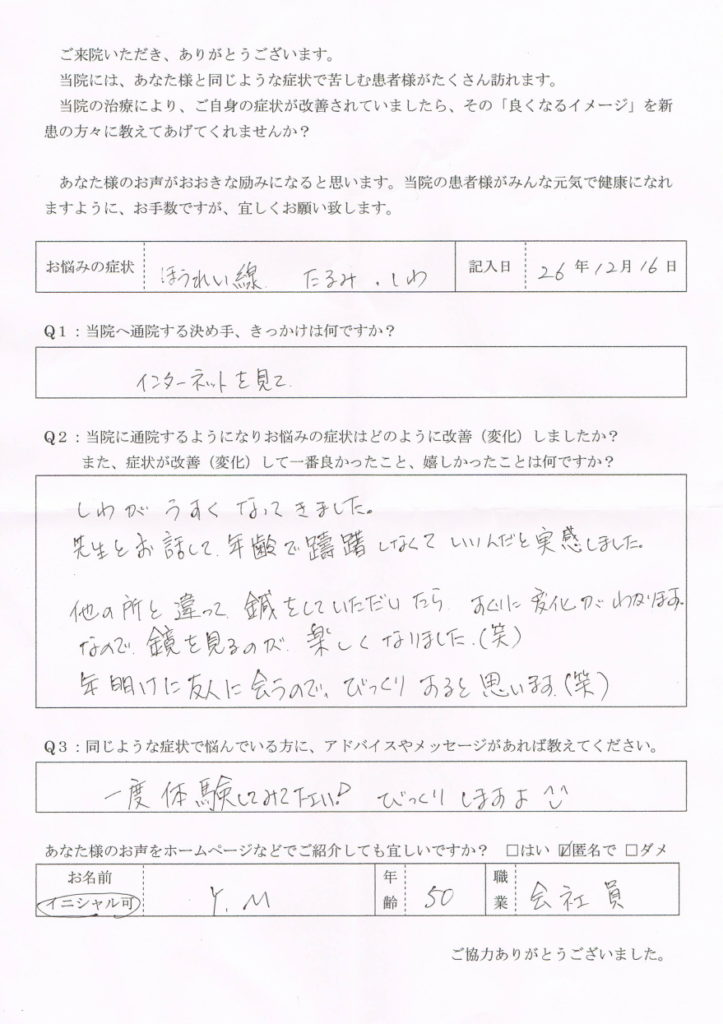 ご来院いただき、ありがとうございます。
当院には、あなた様と同じような症状で苦しむ患者様がたくさん訪れます。
当院の治療により、ご自身の症状が改善されていましたら、その「良くなるイメージ」を新
患の方々に教えてあげてくれませんか？
あなた様のお声がおおきな励みになると思います。当院の患者様がみんな元気で健康になれ
ますように、お手数ですが、宜しくお願い致します。
お悩みの症状 ほうれい線 たるみ・しわ 記入日 26年12月16日
Q1：当院へ通院する決め手、きっかけは何ですか？
インターネットを見て
Q2：当院に通院するようになりお悩みの症状はどのように改善（変化）しましたか？
また、症状が改善（変化）して一番良かったこと、嬉しかったことは何ですか？
しわが うすく なってきました。
先生とお話して、年齢で躊躇しなくていいんだと実感しました。
他の所と違って、鍼をしていただいたら すぐに変化がわかります。
なので、鏡を見るのが、楽しくなりました。(笑)
年明けに友人に会うので、びっくりすると思います。(笑)
Q3：同じような症状で悩んでいる方に、アドバイスやメッセージがあれば教えてください。
一度体験してみて下さい♪ びっくりしますよ ^^
あなた様のお声をホームページなどでご紹介しても宜しいですか？ □はい ☑匿名で □ダメ
お名前 イニシャル可 Y.M 年齢 50 職業 会社員
ご協力ありがとうございました。